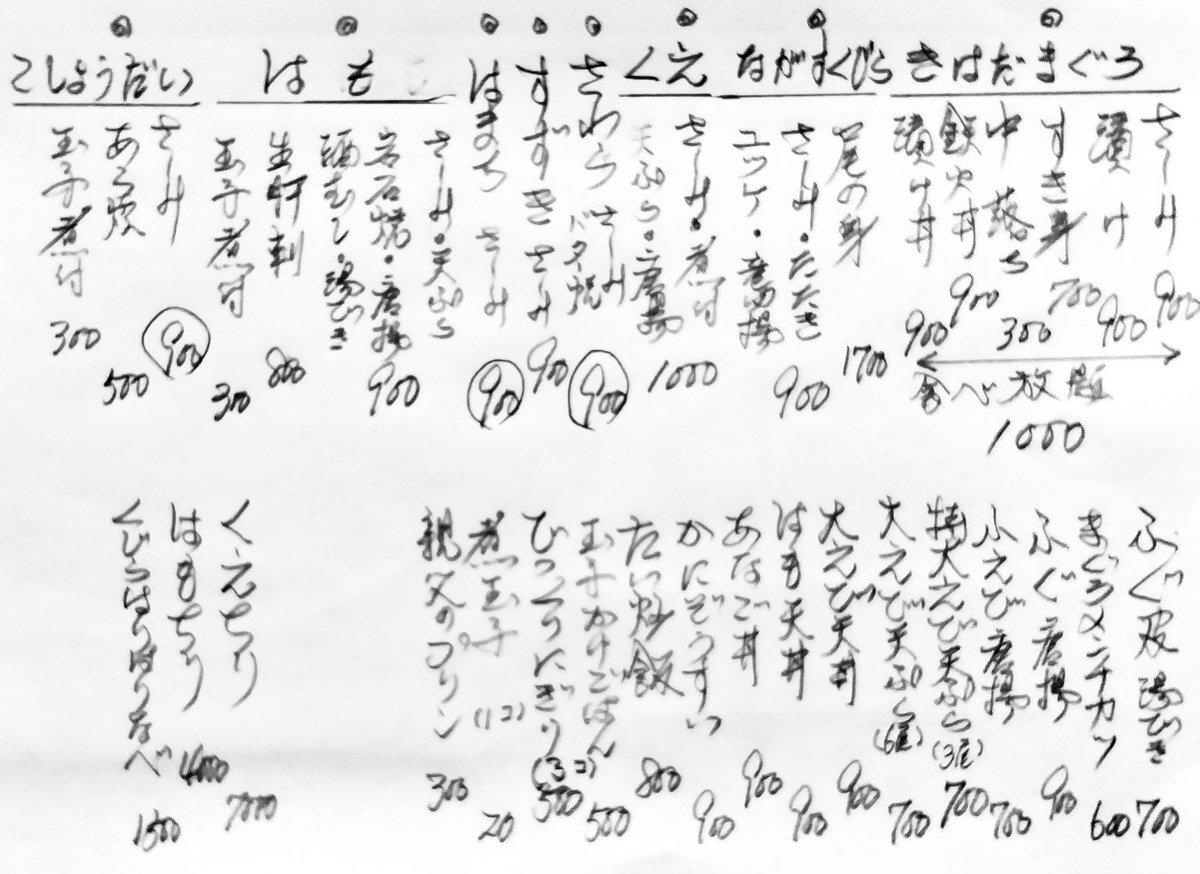 きはだまぐろ
さしみ 900
漬け 900
すき身 700
中落ち 300
鉄火丼 900
漬け丼 900
食べ放題
1000
ながすくじら
尾の身 1700
さしみ・たたき
ユッケ・竜田揚 900
くえ
さしみ・煮付
天ぷら・唐揚 1000
さわら さしみ
バタ焼 900
すずき さしみ 900
はまち さしみ 900
はも
さしみ・天ぷら
岩石焼・唐揚 900
酒むし・湯びき
生肝刺 800
玉子煮付 300
こしょうだい
さしみ 900
あら炊 500
玉子煮付 300
ふぐ皮湯びき 700
まぐろメンチカツ 600
ふぐ唐揚 900
小えび唐揚 700
特大えび天ぷら(3尾) 700
大えび天ぷら(6尾) 700
大えび天丼 900
はも天丼 900
あなご丼 900
かにぞうすい 900
たい炒飯 800
玉子かけごはん 500
びっくりにぎり(3コ) 500
煮玉子(1コ) 20
親父のプリン 300
くえちり 7000
はもちり 4000
くじらはりはりなべ 1500